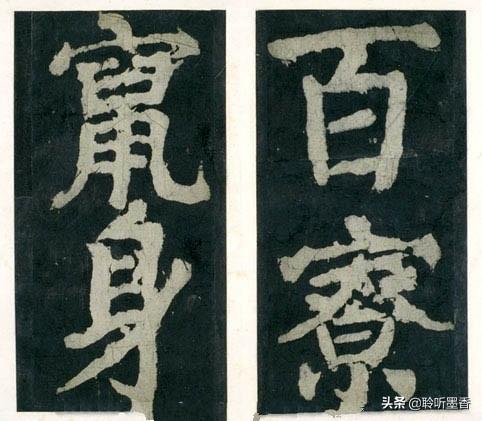 百寮
竄身
头条 @聆听墨香